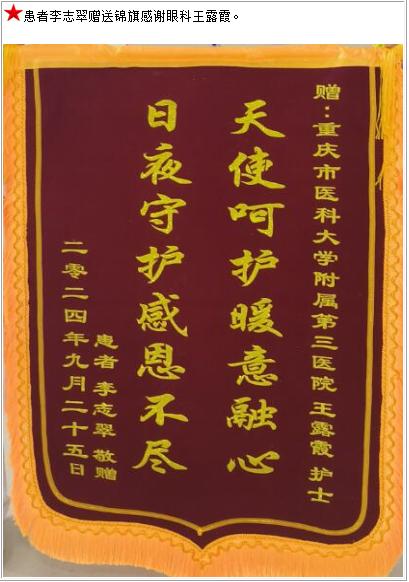 ★患者李志翠赠送锦旗感谢眼科王露霞。
赠：重庆市医科大学附属第三医院 王露霞 护士
天使呵护暖意融心
日夜守护感恩不尽
患者 李志翠 敬赠
二零二四年九月二十五日